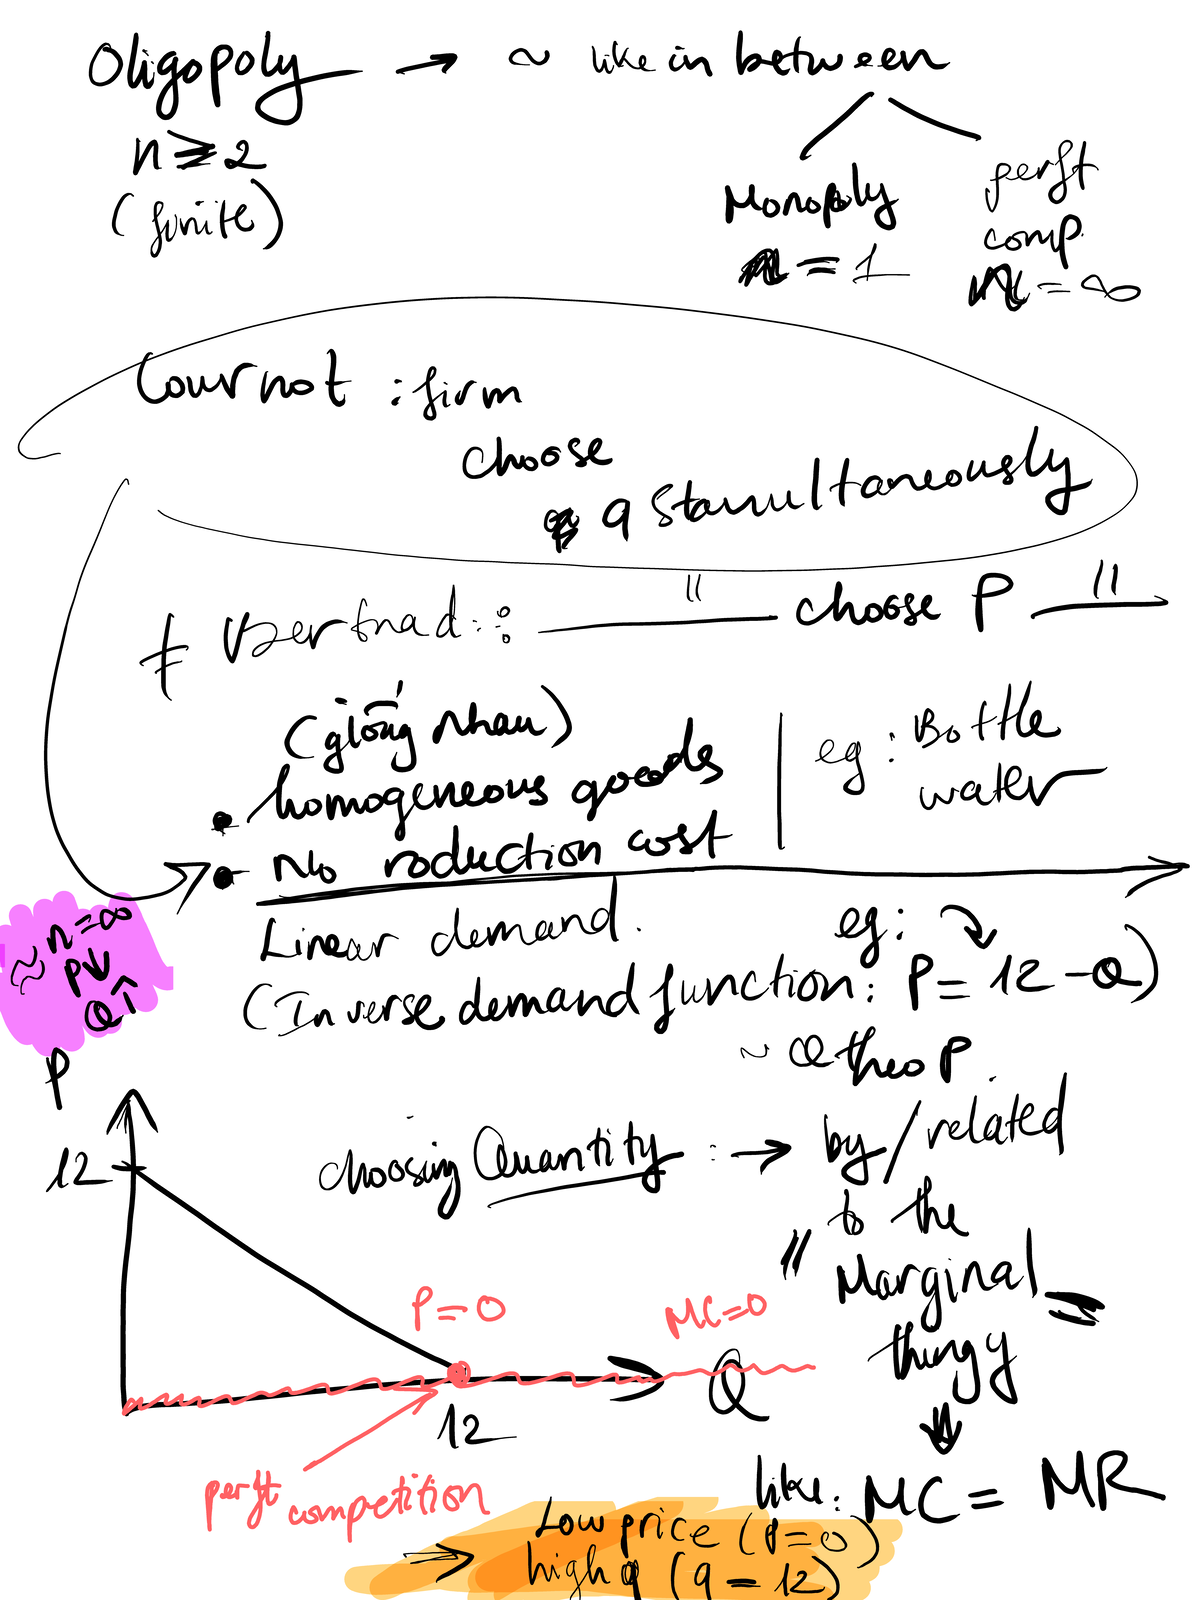 Oligopoly → ~ like in between
n ≥ 2
(finite)
Monopoly
n = 1
perft
comp.
n = ∞
Cournot : firm
choose
q Stamultaneously
≠ Bertnad : " choose P "
(giống nhau)
• homogeneous goods
• No roduction cost
eg : Bottle
water
Linear demand.
eg:
(Inverse demand function : P = 12 - Q)
~ Q theo P
≈ n = ∞
P↓
Q↑
P
12
choosing Quantity : → by / related
to the
" Marginal
thingy
P = 0
MC = 0
Q
12
perft competition
like : MC = MR
→ Low price (P = 0)
high q (q = 12)